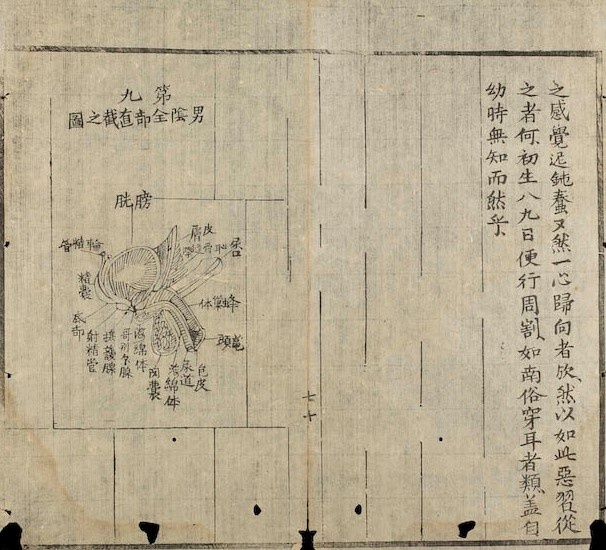 之感覺迟鈍蠢又然一心歸向者欤、然以如此惡習從
之者何、初生八九日便行周割、如南俗穿耳者類、盖自
幼時無知而然乎、
七十
第九
男陰全部直截之圖
膀胱
皮膚
輸精管
精囊
底部
射精管
攝護腺
海綿体
陰囊
海綿体
尿道
包皮
蜂窠体
龜頭